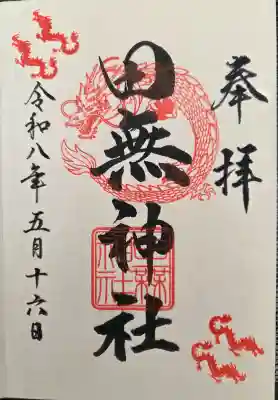 奉拝
田無神社
田無神社
令和八年五月十六日